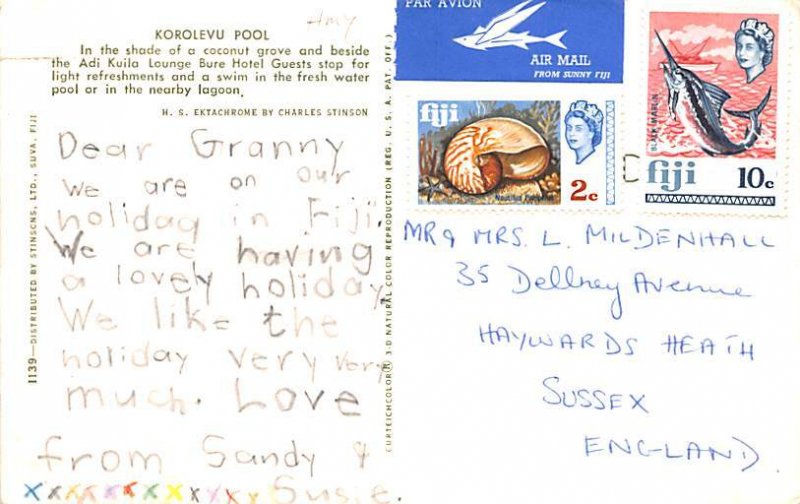 Amy
KOROLEVU POOL
In the shade of a coconut grove and beside
the Adi Kuila Lounge Bure Hotel Guests stop for
light refreshments and a swim in the fresh water
pool or in the nearby lagoon.
H. S. EKTACHROME BY CHARLES STINSON
Dear Granny
we are on our
holiday in Fiji.
We are having
a lovely holiday.
We like the
holiday very very
much. Love
from Sandy &
Susie.
x x x x x x x x x x x x
1139—DISTRIBUTED BY STINSONS, LTD., SUVA, FIJI
CURTEICHCOLOR® 3-D NATURAL COLOR REPRODUCTION (REG. U. S. A. PAT. OFF.)
PAR AVION
AIR MAIL
FROM SUNNY FIJI
fiji
Nautilus Pompilius
2c
BLACK MARLIN
fiji 10c
MR & MRS. L. MILDENHALL
35 Dellney Avenue
HAYWARDS HEATH
SUSSEX
ENGLAND.